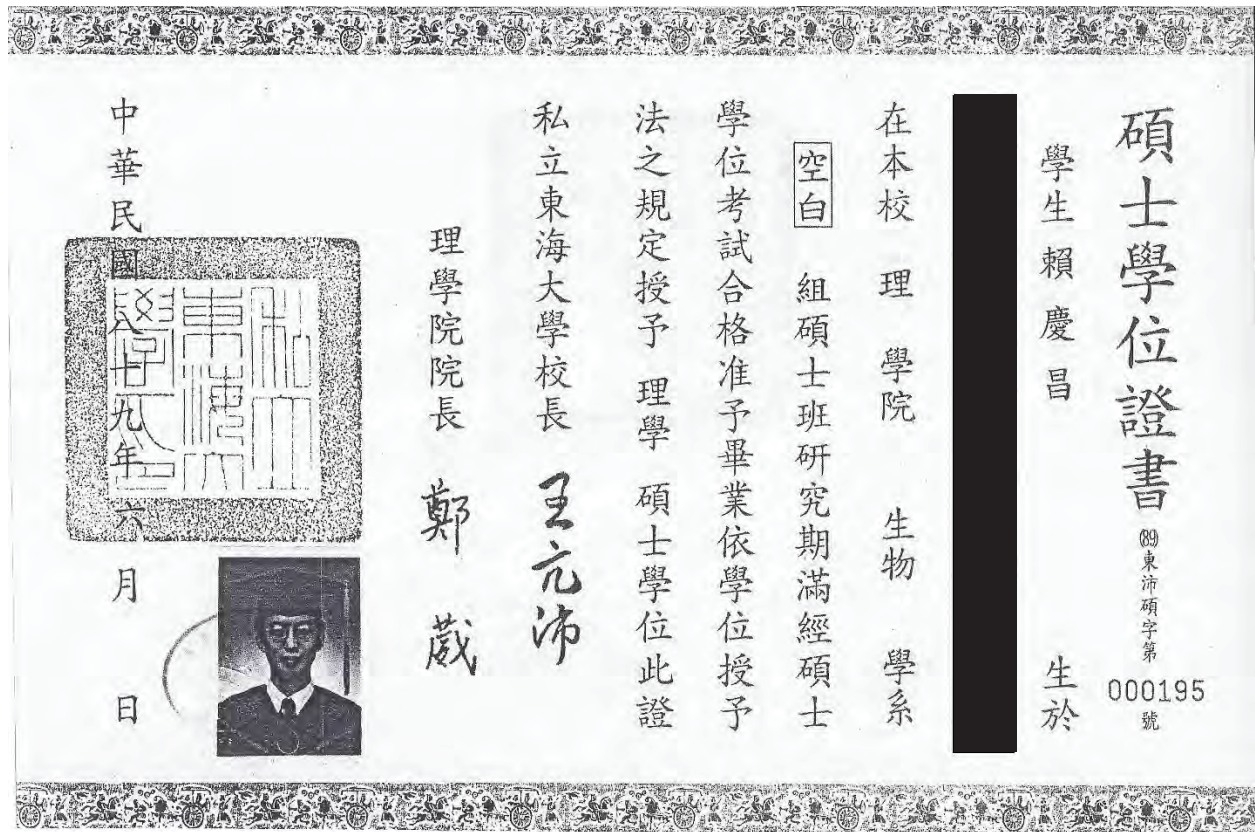 碩士學位證書 (89)東沛碩字第000195號
學生賴慶昌 生於
在本校 理 學院 生物 學系
空白 組碩士班研究期滿經碩士
學位考試合格准予畢業依學位授予
法之規定授予 理學 碩士學位此證
私立東海大學校長 王亢沛
理學院院長 鄭 葳
私立東海大學之印
中華民國八十九年六月 日